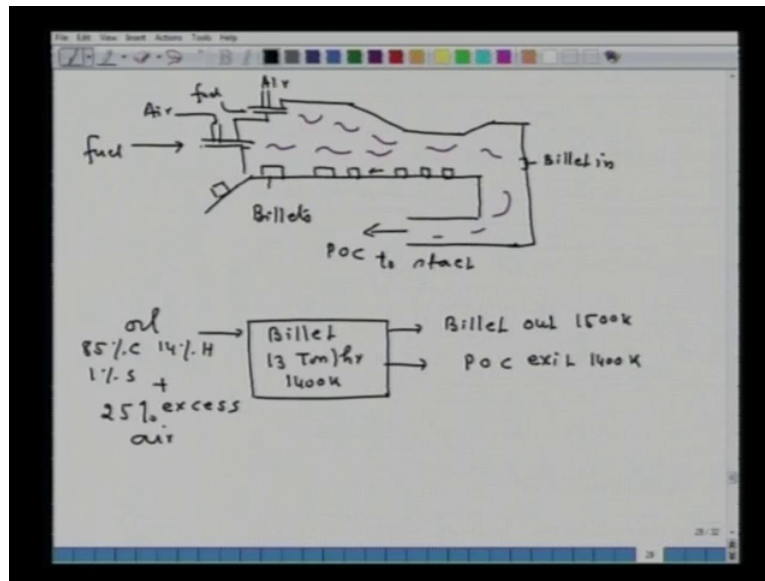 File Edit View Insert Actions Tools Help
Air
fuel
Air
fuel
Billet in
Billets
POC to stack
oil
85%.C 14%.H
1%.S +
25% excess
air
Billet
13 Ton)hr
1400K
Billet out 1500K
POC exit 1400K
28/32
28